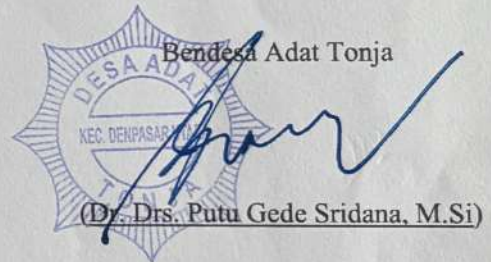 Bendesa Adat Tonja
DESA ADAT
KEC. DENPASAR UTARA
TONJA
(Dr. Drs. Putu Gede Sridana, M.Si)